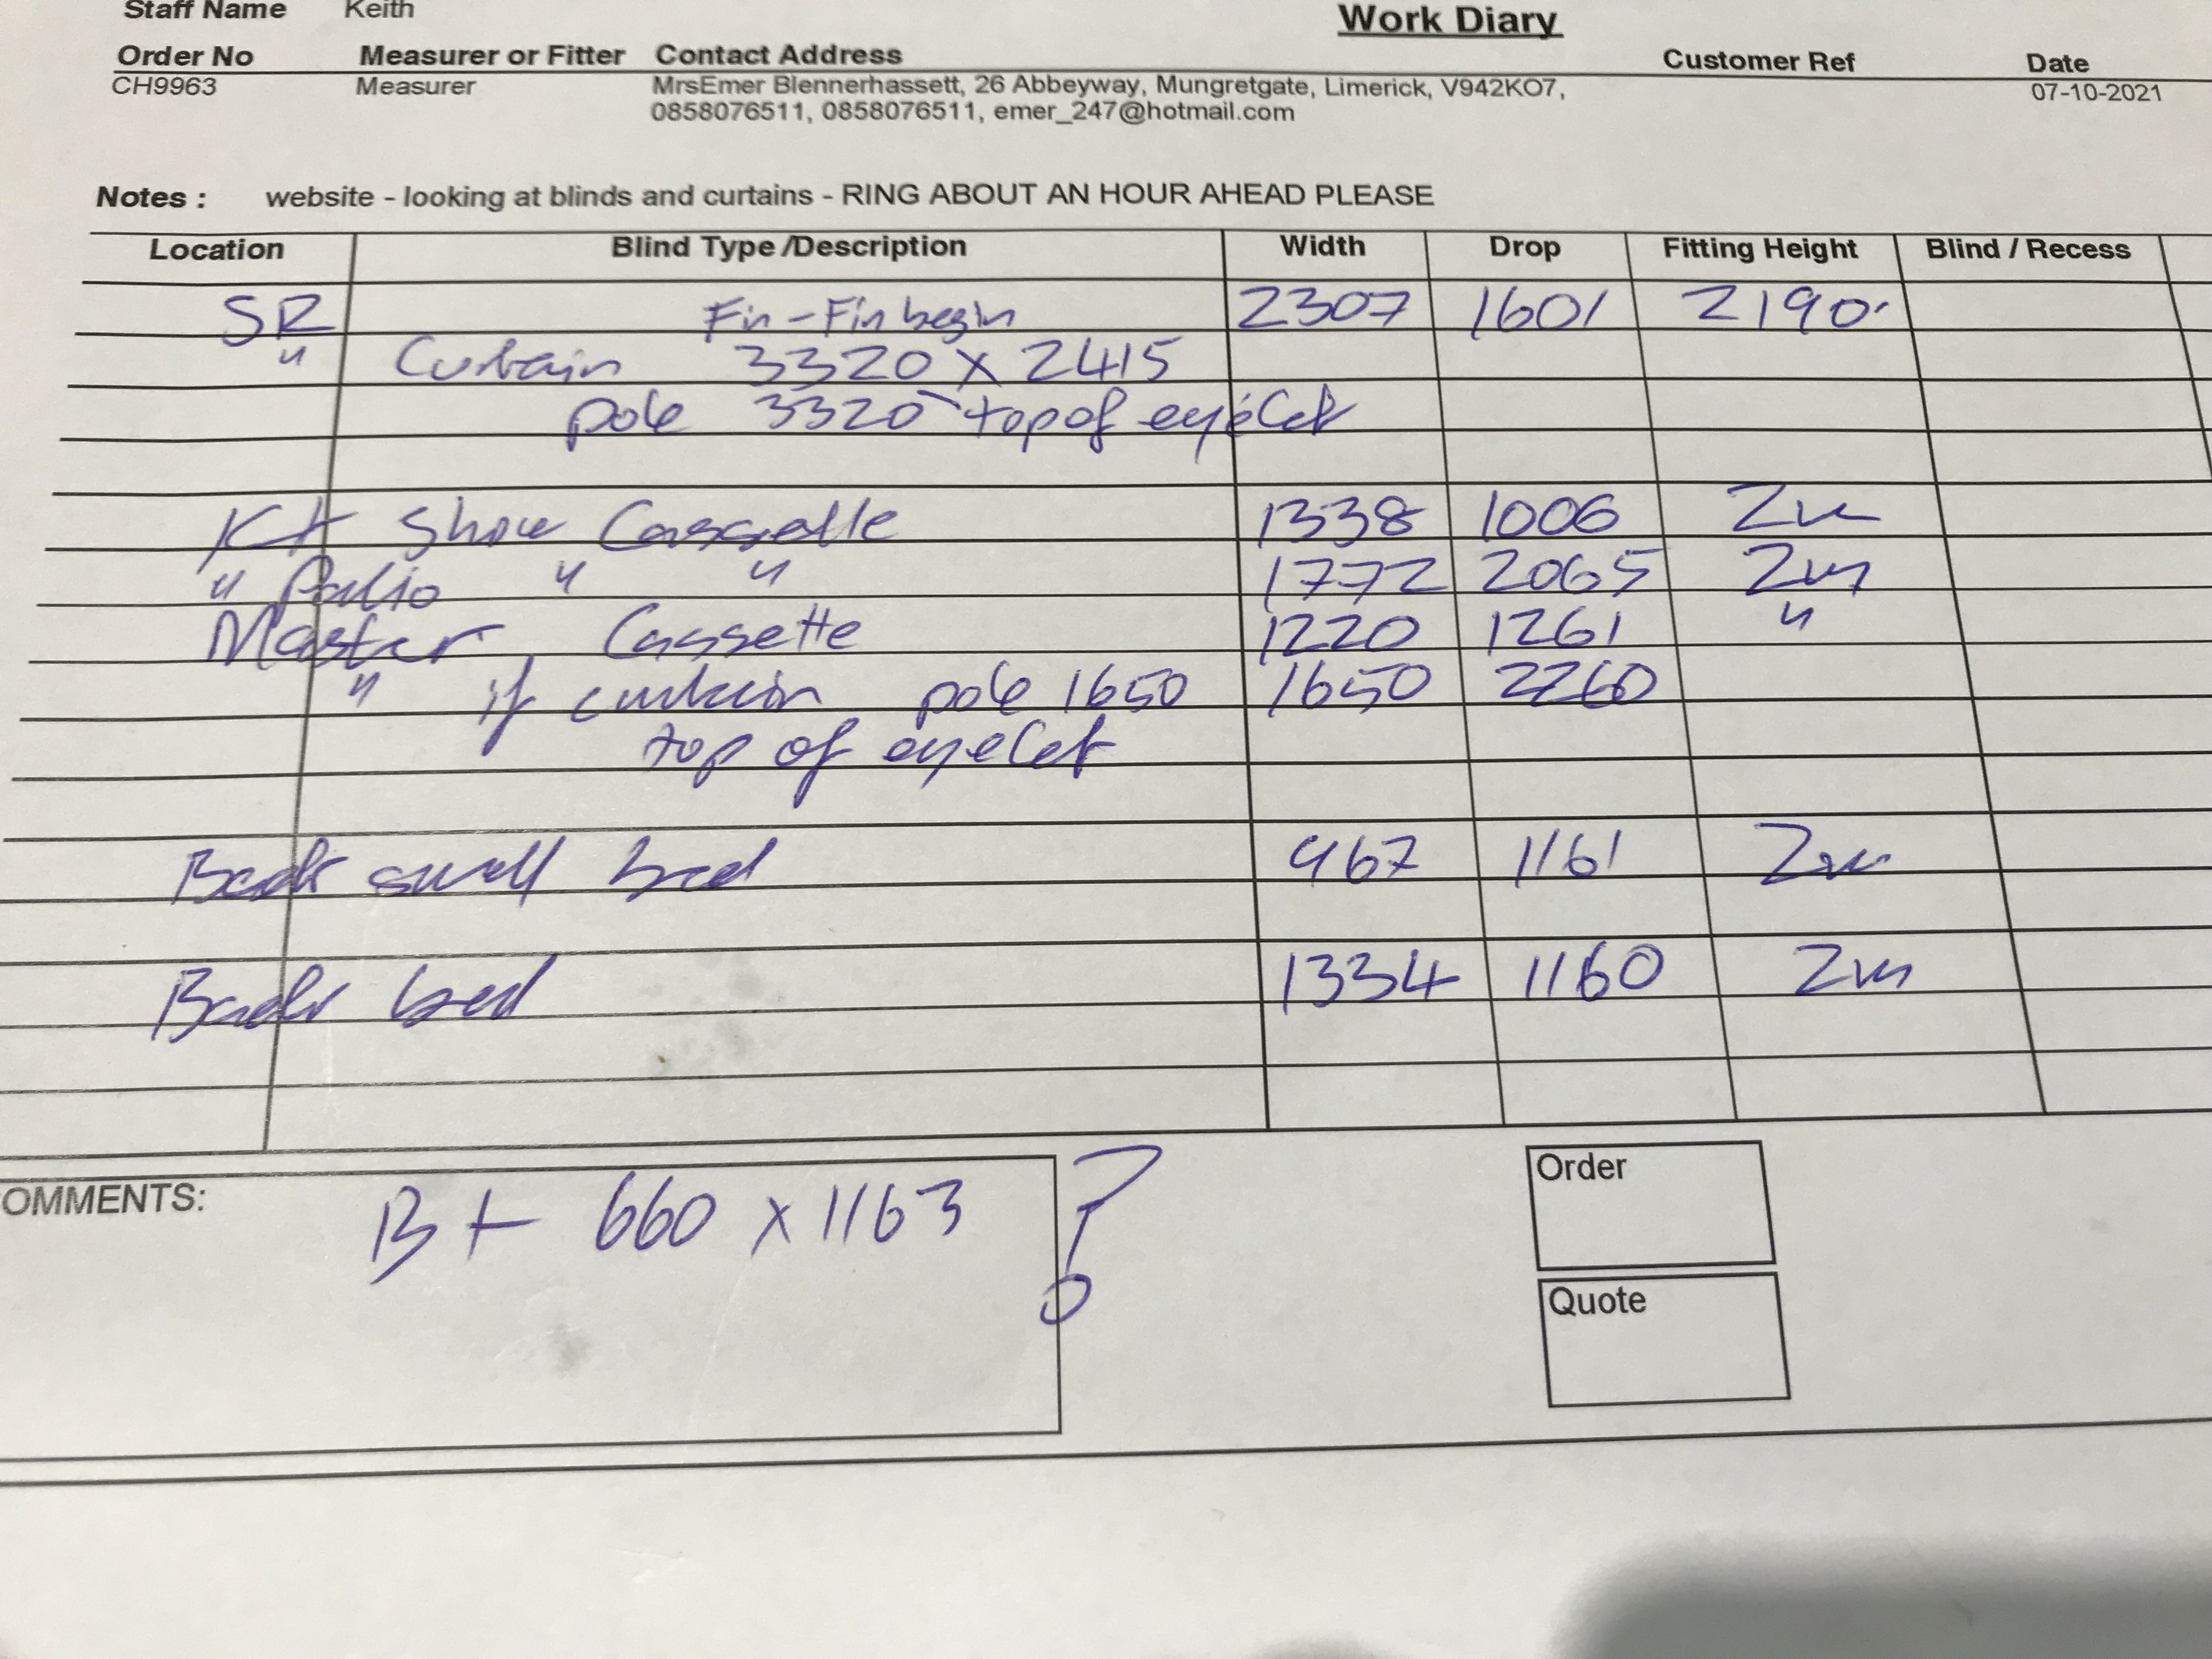 Staff Name Keith
Work Diary
Order No Measurer or Fitter Contact Address Customer Ref Date
CH9963 Measurer MrsEmer Blennerhassett, 26 Abbeyway, Mungretgate, Limerick, V942KO7, 07-10-2021
0858076511, 0858076511, emer_247@hotmail.com
Notes : website - looking at blinds and curtains - RING ABOUT AN HOUR AHEAD PLEASE
Location Blind Type /Description Width Drop Fitting Height Blind / Recess
SR Fin-Fin begin 2307 1601 2190.
" Curtain 3320 x 2415
pole 3320 top of eyelet
Kt Show Cassette 1338 1006 2m
" Patio " " 1772 2065 2m
Master Cassette 1220 1261 "
" if curtain pole 1650 1650 2260
top of eyelet
Back small bed 967 1161 2m
Back bed 1334 1160 2m
OMMENTS: Bt 660 x 1163 ?
Order
Quote